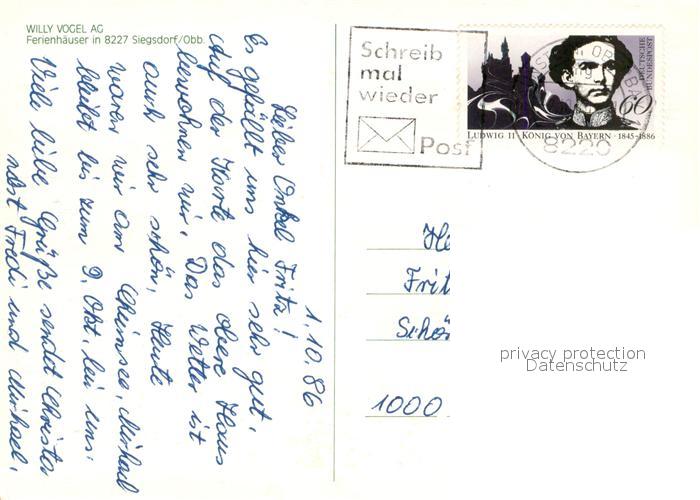 WILLY VOGEL AG
Ferienhäuser in 8227 Siegsdorf/Obb.
1.10.86
Lieber Onkel Fritz!
Es gefällt uns hier sehr gut,
Auf der Karte das obere Haus
bewohnen wir. Das Wetter ist
auch sehr schön, Heute
waren wir am Chiemsee, Michael
bleibt bis zum 9. Okt. bei uns.
Viele liebe Grüße sendet Christa
nebst Fredi und Michael.
Schreib
mal
wieder
Post
DEUTSCHE
BUNDESPOST
60
LUDWIG II · KÖNIG VON BAYERN · 1845-1886
8220
He
Frit
Schö
1000
privacy protection
Datenschutz